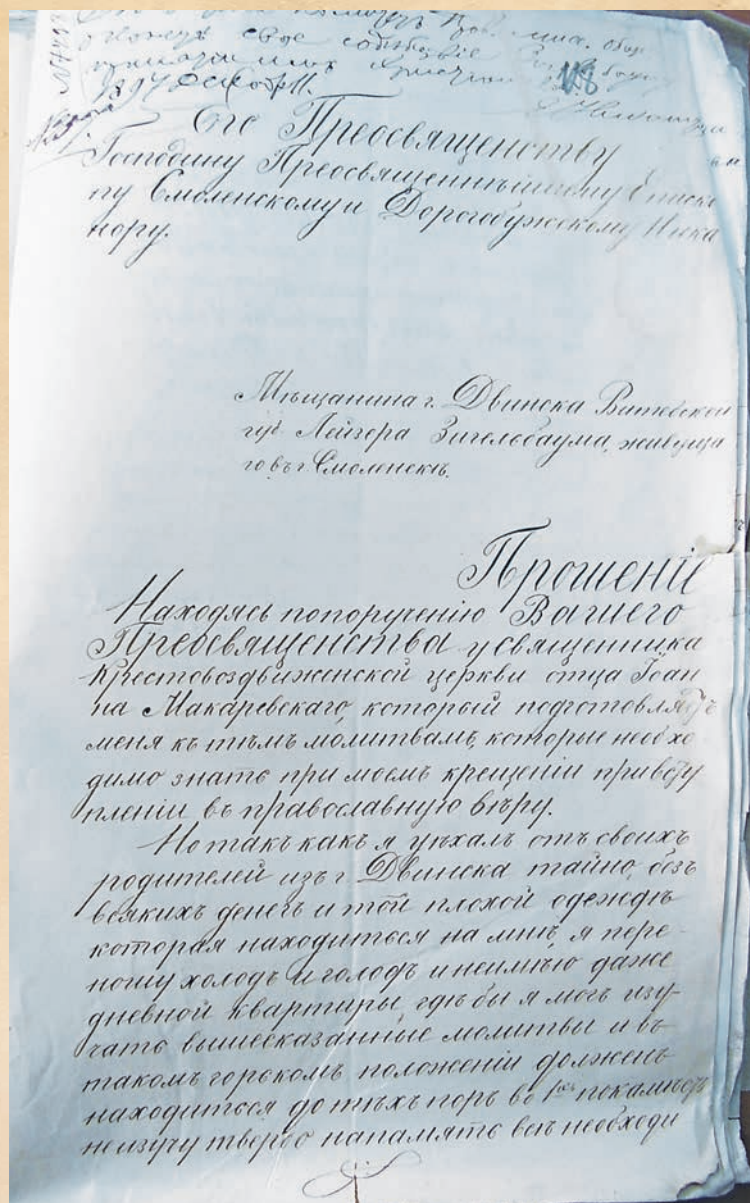 свое
1897
№ 7493
118
Его Преосвященству
Господину Преосвященнѣйшему Еписко
пу Смоленскому и Дорогобужскому Ника
нору.
Мѣщанина г. Двинска Витебской
губ. Лейзера Зигельбаума, живуща
го въ г. Смоленскѣ.
Прошеніе
Находясь по порученію Вашего
Преосвященства у священника
Крестовоздвиженской церкви отца Іоан
на Макаревскаго, который подготовляетъ
меня къ тѣмъ молитвамъ, которые необхо
димо знать при моемъ крещеніи при всту
пленіи въ православную вѣру.
Но такъ какъ я уѣхалъ отъ своихъ
родителей изъ г. Двинска тайно, безъ
всякихъ денегъ и той плохой одеждѣ
которая находиться на мнѣ, я пере-
ношу холодъ и голодъ и неимѣю даже
дневной квартиры, гдѣ бы я могъ изу-
чать вышесказанные молитвы и въ
такомъ горькомъ положеніи долженъ
находиться до тѣхъ поръ во 1хъ покамѣстъ
не изучу твердо напамять всѣ необходи